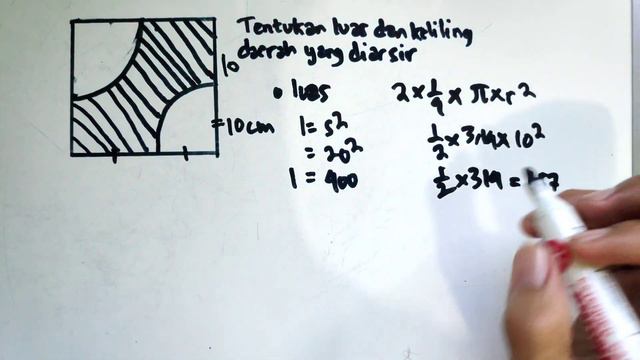 Tentukan luas dan keliling
daerah yang diarsir
10
= 10 cm
• luas
l = s²
= 20²
l = 400
2 × 1/4 × π × r²
1/2 × 3,14 × 10²
1/2 × 314 =